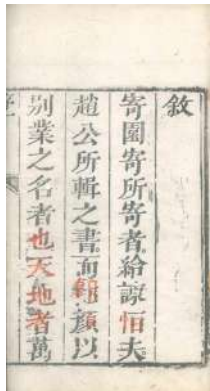 敘
寄園寄所寄者給諫恒夫
趙公所輯之書而額以
別業之名者也天地者萬